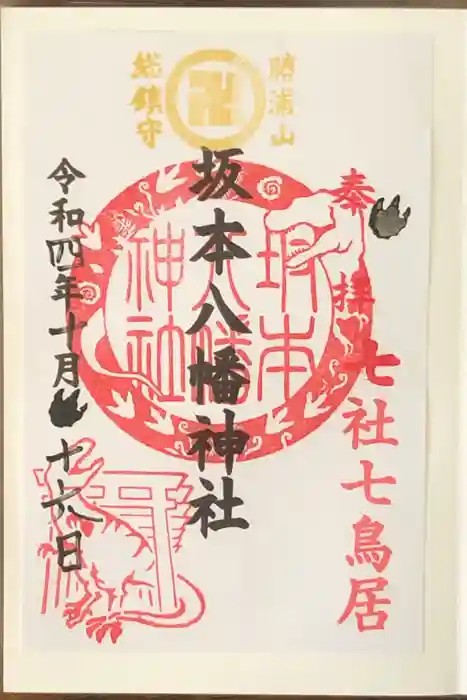 奉拝
七社七鳥居
勝浦山
総鎮守
卍
坂本八幡神社
坂本八幡神社
令和四年十月十六日